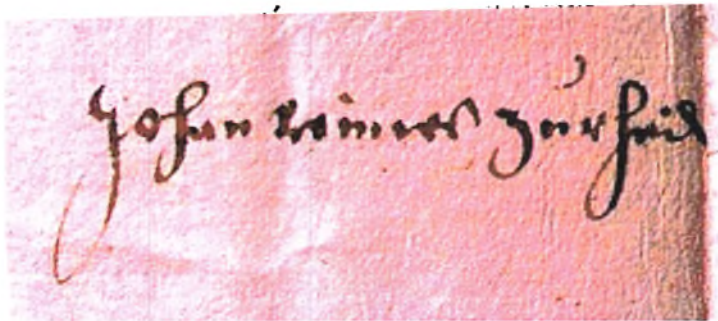 Johan reiners zurheid